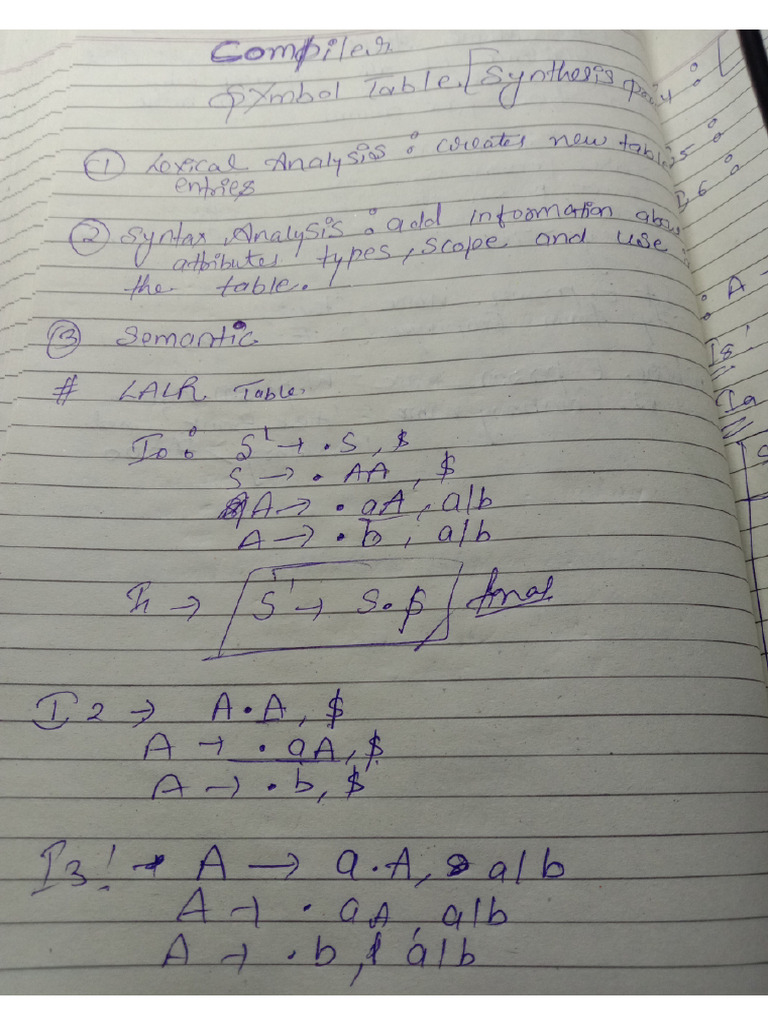 Compiler
Symbol Table [Synthesis
① Lexical Analysis : creates new table
entries
② Syntax Analysis : add information abou
attributes types, scope and use
the table.
③ Semantic
# LALR Table
I0 : S' → .S, $
S → . AA, $
A → . aA, a/b
A → . b, a/b
I1 → S' → S. $
I2 → A.A, $
A → . aA, $
A → . b, $
I3 : → A → a.A, a/b
A → . aA, a/b
A → . b, a/b
5 :
I6 :
: A →
I8 :
I9
S